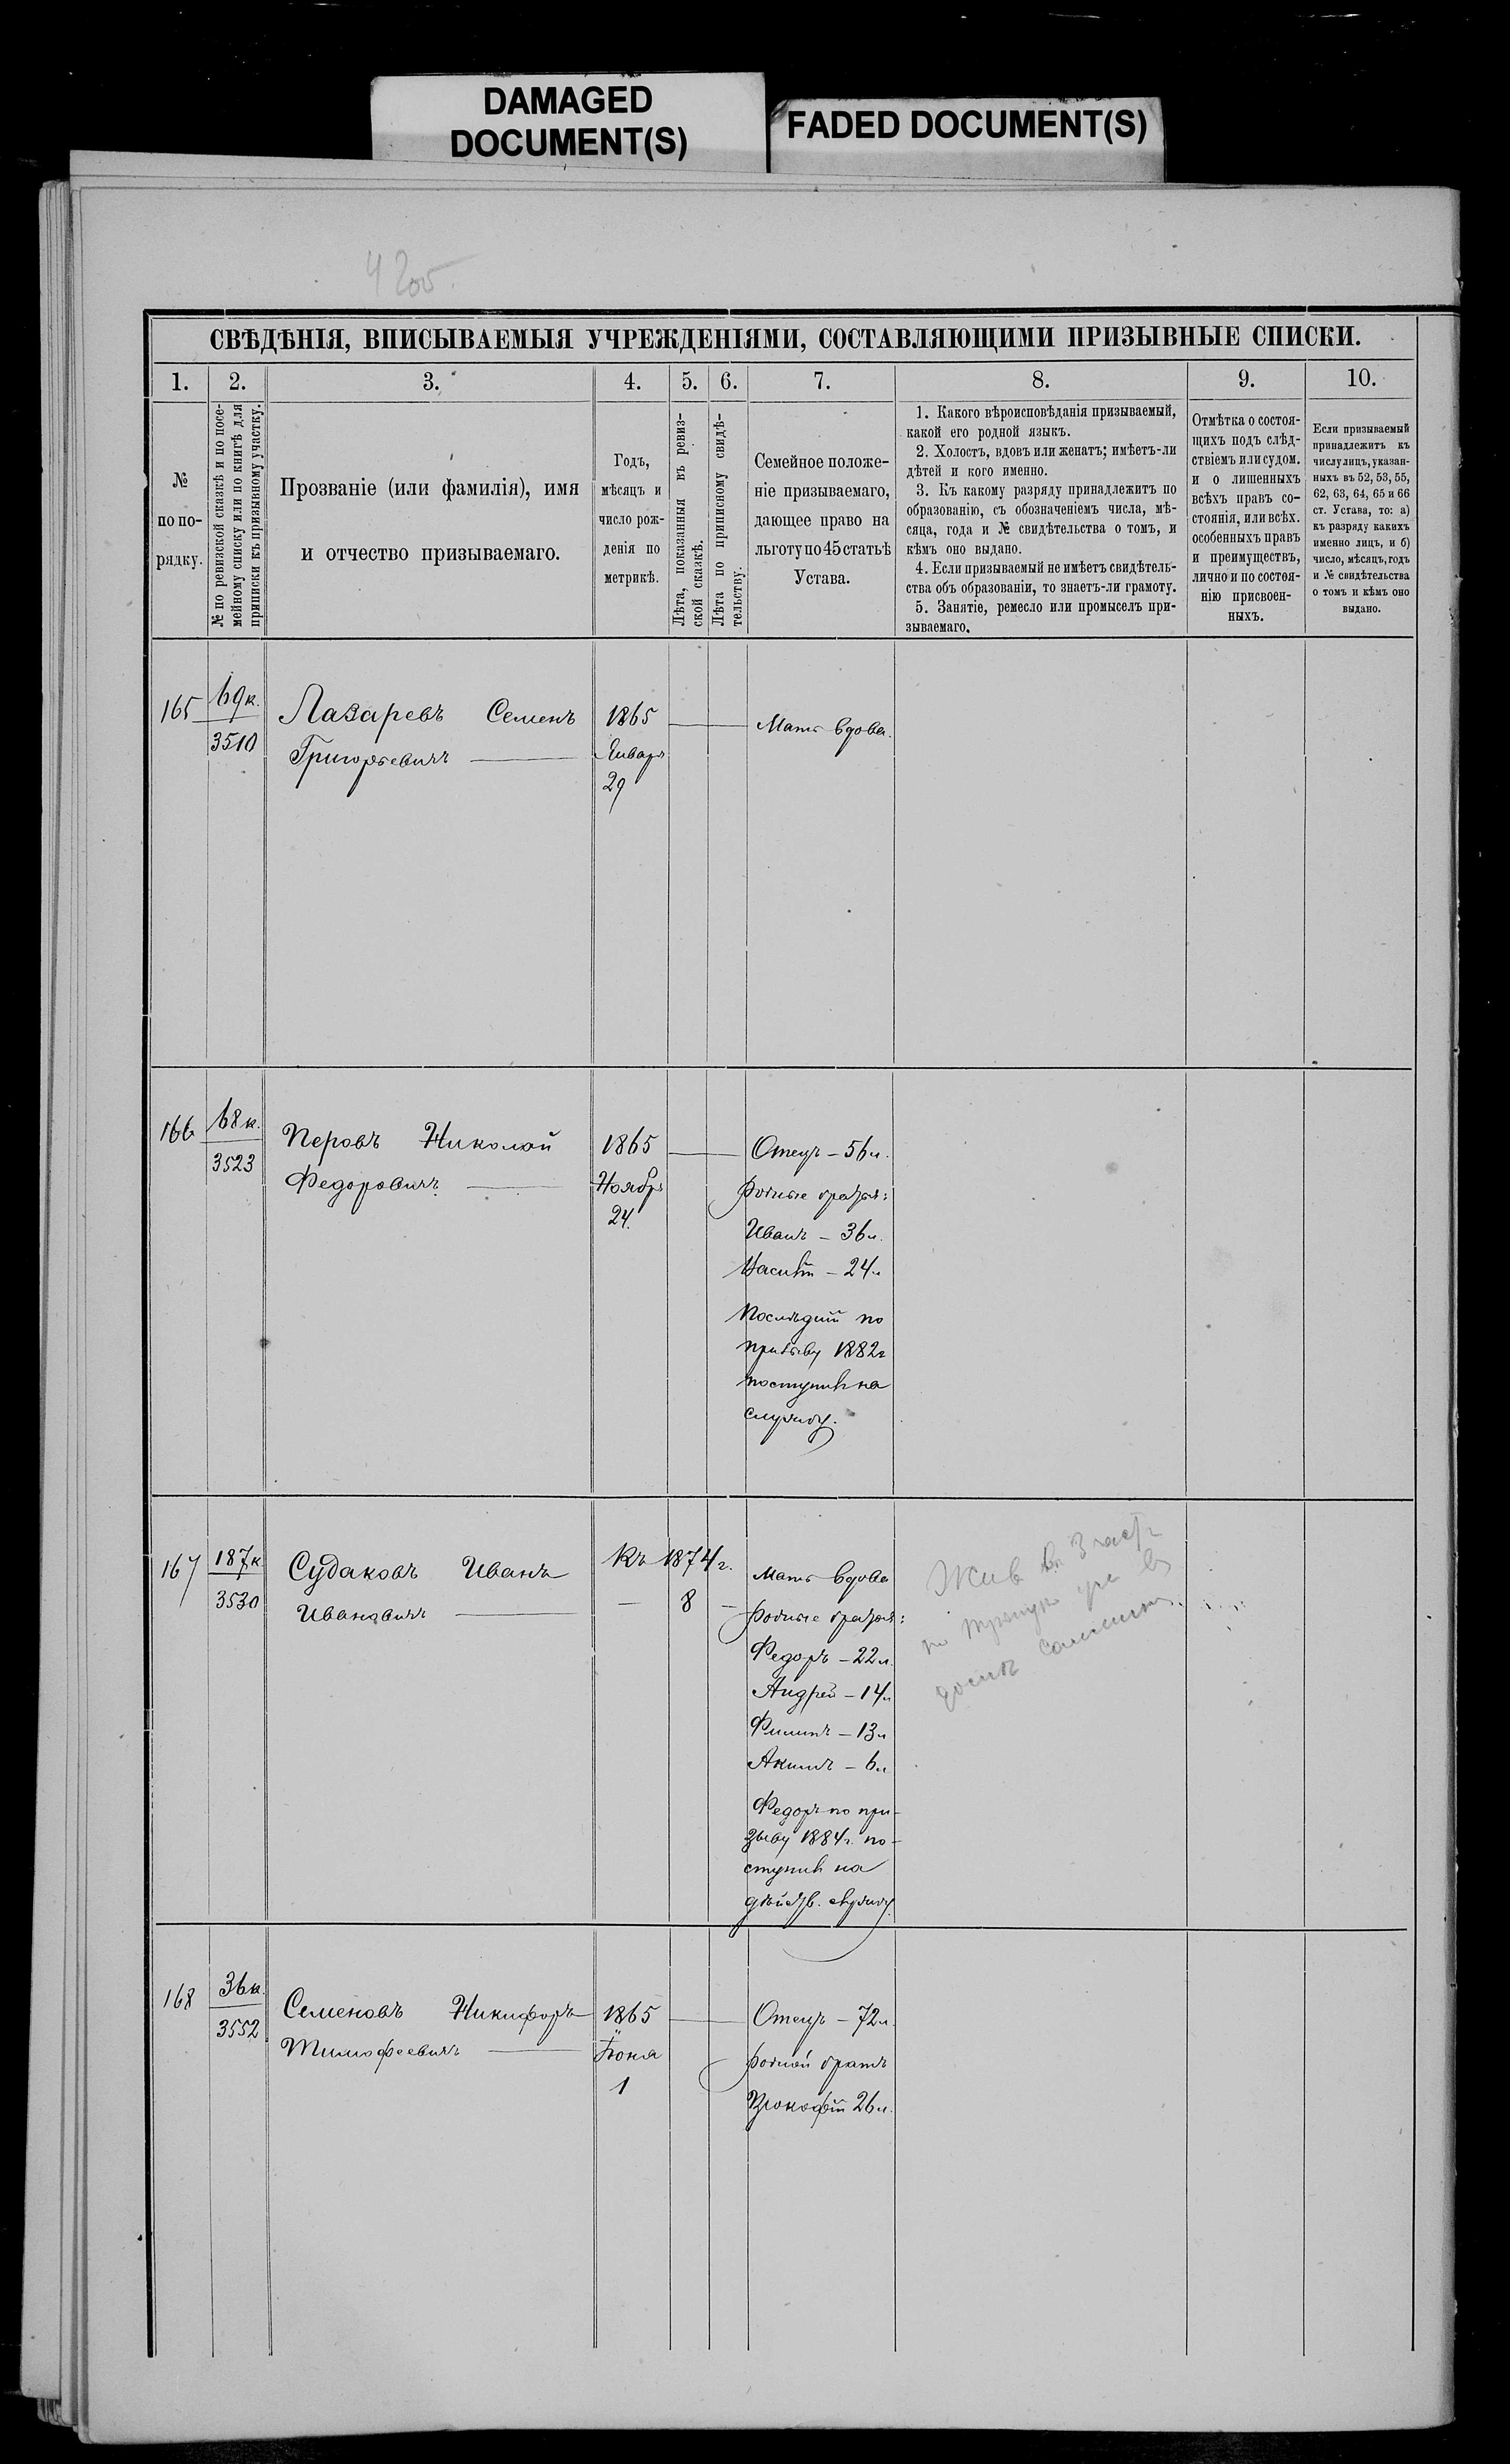 DAMAGED
DOCUMENT(S)
FADED DOCUMENT(S)
СВѢДѢНІЯ, ВПИСЫВАЕМЫЯ УЧРЕЖДЕНІЯМИ, СОСТАВЛЯЮЩИМИ ПРИЗЫВНЫЕ СПИСКИ.
1.
2.
3.
4.
5.
6.
7.
8.
9.
10.
№
по по-
рядку.
№ по ревизской сказкѣ и по посе-
мейному списку или по книгѣ для
приписки къ призывному участку.
Прозваніе (или фамилія), имя
и отчество призываемаго.
Годъ,
мѣсяцъ и
число рож-
денія по
метрикѣ.
Лѣта, показанныя въ ревиз-
ской сказкѣ.
Лѣта по приписному свидѣ-
тельству.
Семейное положе-
ніе призываемаго,
дающее право на
льготу по 45 статьѣ
Устава.
1. Какого вѣроисповѣданія призываемый,
какой его родной языкъ.
2. Холостъ, вдовъ или женатъ; имѣетъ-ли
дѣтей и кого именно.
3. Къ какому разряду принадлежитъ по
образованію, съ обозначеніемъ числа, мѣ-
сяца, года и № свидѣтельства о томъ, и
кѣмъ оно выдано.
4. Если призываемый не имѣетъ свидѣтель-
ства объ образованіи, то знаетъ-ли грамоту.
5. Занятіе, ремесло или промыселъ при-
зываемаго.
Отмѣтка о состоя-
щихъ подъ слѣд-
ствіемъ или судомъ.
и о лишенныхъ
всѣхъ правъ со-
стоянія, или всѣхъ.
особенныхъ правъ
и преимуществъ,
лично и по состоя-
нію присвоен-
ныхъ.
Если призываемый
принадлежитъ къ
числу лицъ, указан-
ныхъ въ 52, 53, 55,
62, 63, 64, 65 и 66
ст. Устава, то: а)
къ разряду какихъ
именно лицъ, и б)
число, мѣсяцъ, годъ
и № свидѣтельства
о томъ и кѣмъ оно
выдано.
165
69к.
3510
Лазаревъ Семенъ
Григорьевичъ
1865
Январ
29
Мать вдова.
166
68к.
3523
Перовъ Николай
Федоровичъ
1865
Ноябр
24.
Отецъ – 56л.
Родные братья:
Иванъ – 36л.
Василій – 24л
Послѣдній по
призыву 1882г
поступилъ на
службу.
167
187к
3530
Судаковъ Иванъ
Ивановичъ
Къ 1874г.
— 8 —
Мать вдова
Родные братья:
Федоръ – 22л.
Андрей – 14л
Филипъ – 13л
Акимъ – 6л
Федоръ по при-
зыву 1884г. по-
ступилъ на
дѣйств. службу.
168
36к.
3552
Семеновъ Никифоръ
Тимофеевичъ
1865
Іюня
1
Отецъ – 72л.
Родной братъ
Прокофій 26л.